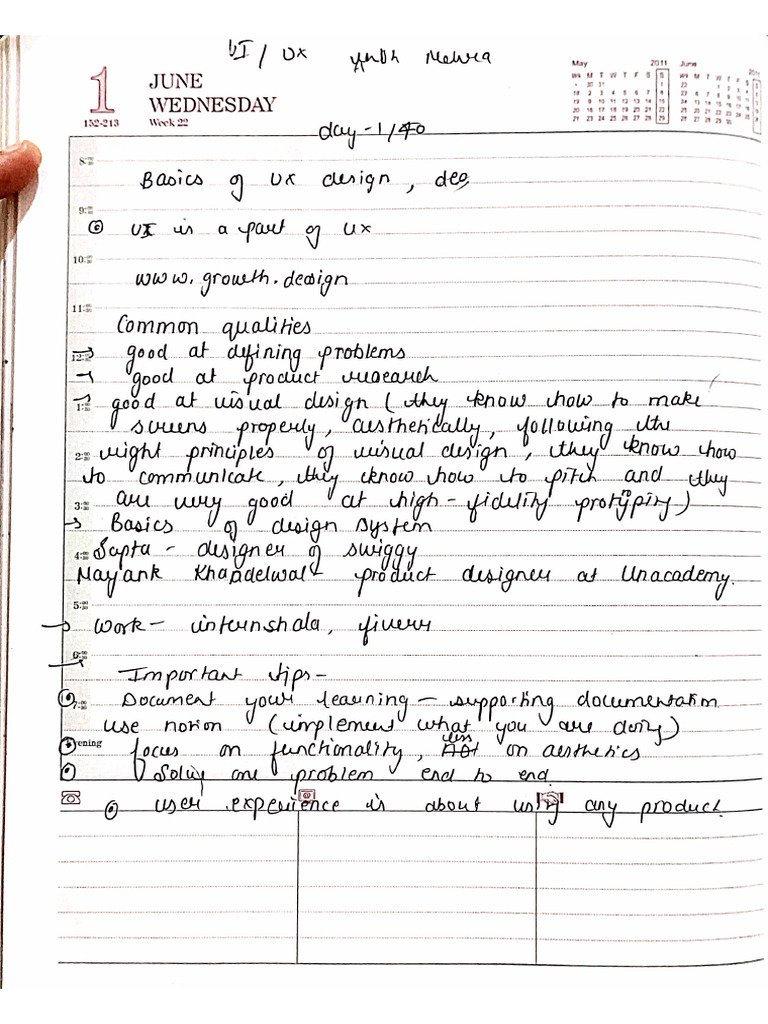 UI / UX
1 JUNE
WEDNESDAY
152-213 Week 22
May 2011 June
day-1/40
Basics of UX design,
UI is a part of UX
www.growth.design
Common qualities
→ good at defining problems
→ good at product research
→ good at visual design ( they know how to make
screens properly, aesthetically, following the
right principles of visual design, they know how
to communicate, they know how to pitch and they
are very good at high-fidelity protyping)
→ Basics of design system
Sapta - designer of swiggy
Mayank Khandelwal - product designer at Unacademy.
→ work - internshala, fiverr
→ Important tips -
Document your learning - supporting documentation
use notion (implement what you are doing)
focus on functionality, less on aesthetics
Solve one problem end to end.
user experience is about using any product.